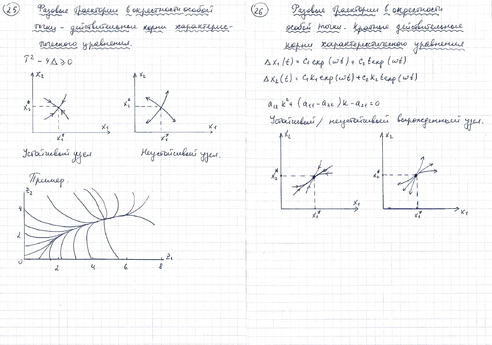 25
Фазовые траектории в окрестности особой
точки - действительные корни характерис-
тического уравнения.
T² - 4Δ ≥ 0
x₂
x₂
x₂*
x₂*
x₁*
x₁
x₁*
x₁
Устойчивый узел
Неустойчивый узел.
Пример.
z₂
4
2
0
2
4
6
8
z₁
26
Фазовые траектории в окрестности
особой точки. Кратные действительные
корни характеристического уравнения
Δx₁(t) = C₁ exp(ωt) + C₂ t exp(ωt)
Δx₂(t) = C₁K₁ exp(ωt) + C₂K₂ t exp(ωt)
a₁₂k² + (a₁₁ - a₂₂)k - a₂₁ = 0
Устойчивый / неустойчивый вырожденный узел.
x₂
x₂
x₂*
x₂*
x₁*
x₁
x₁*
x₁